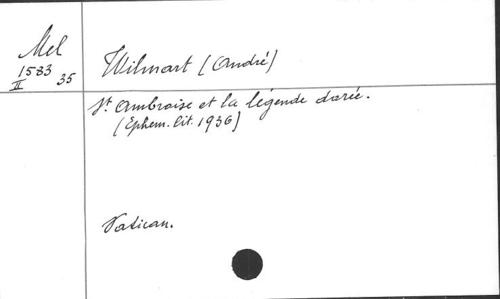 Mel
1583
II 35
Wilmart (André)
St Ambroise et la légende dorée.
(Ephem. lit. 1936)
Vatican.